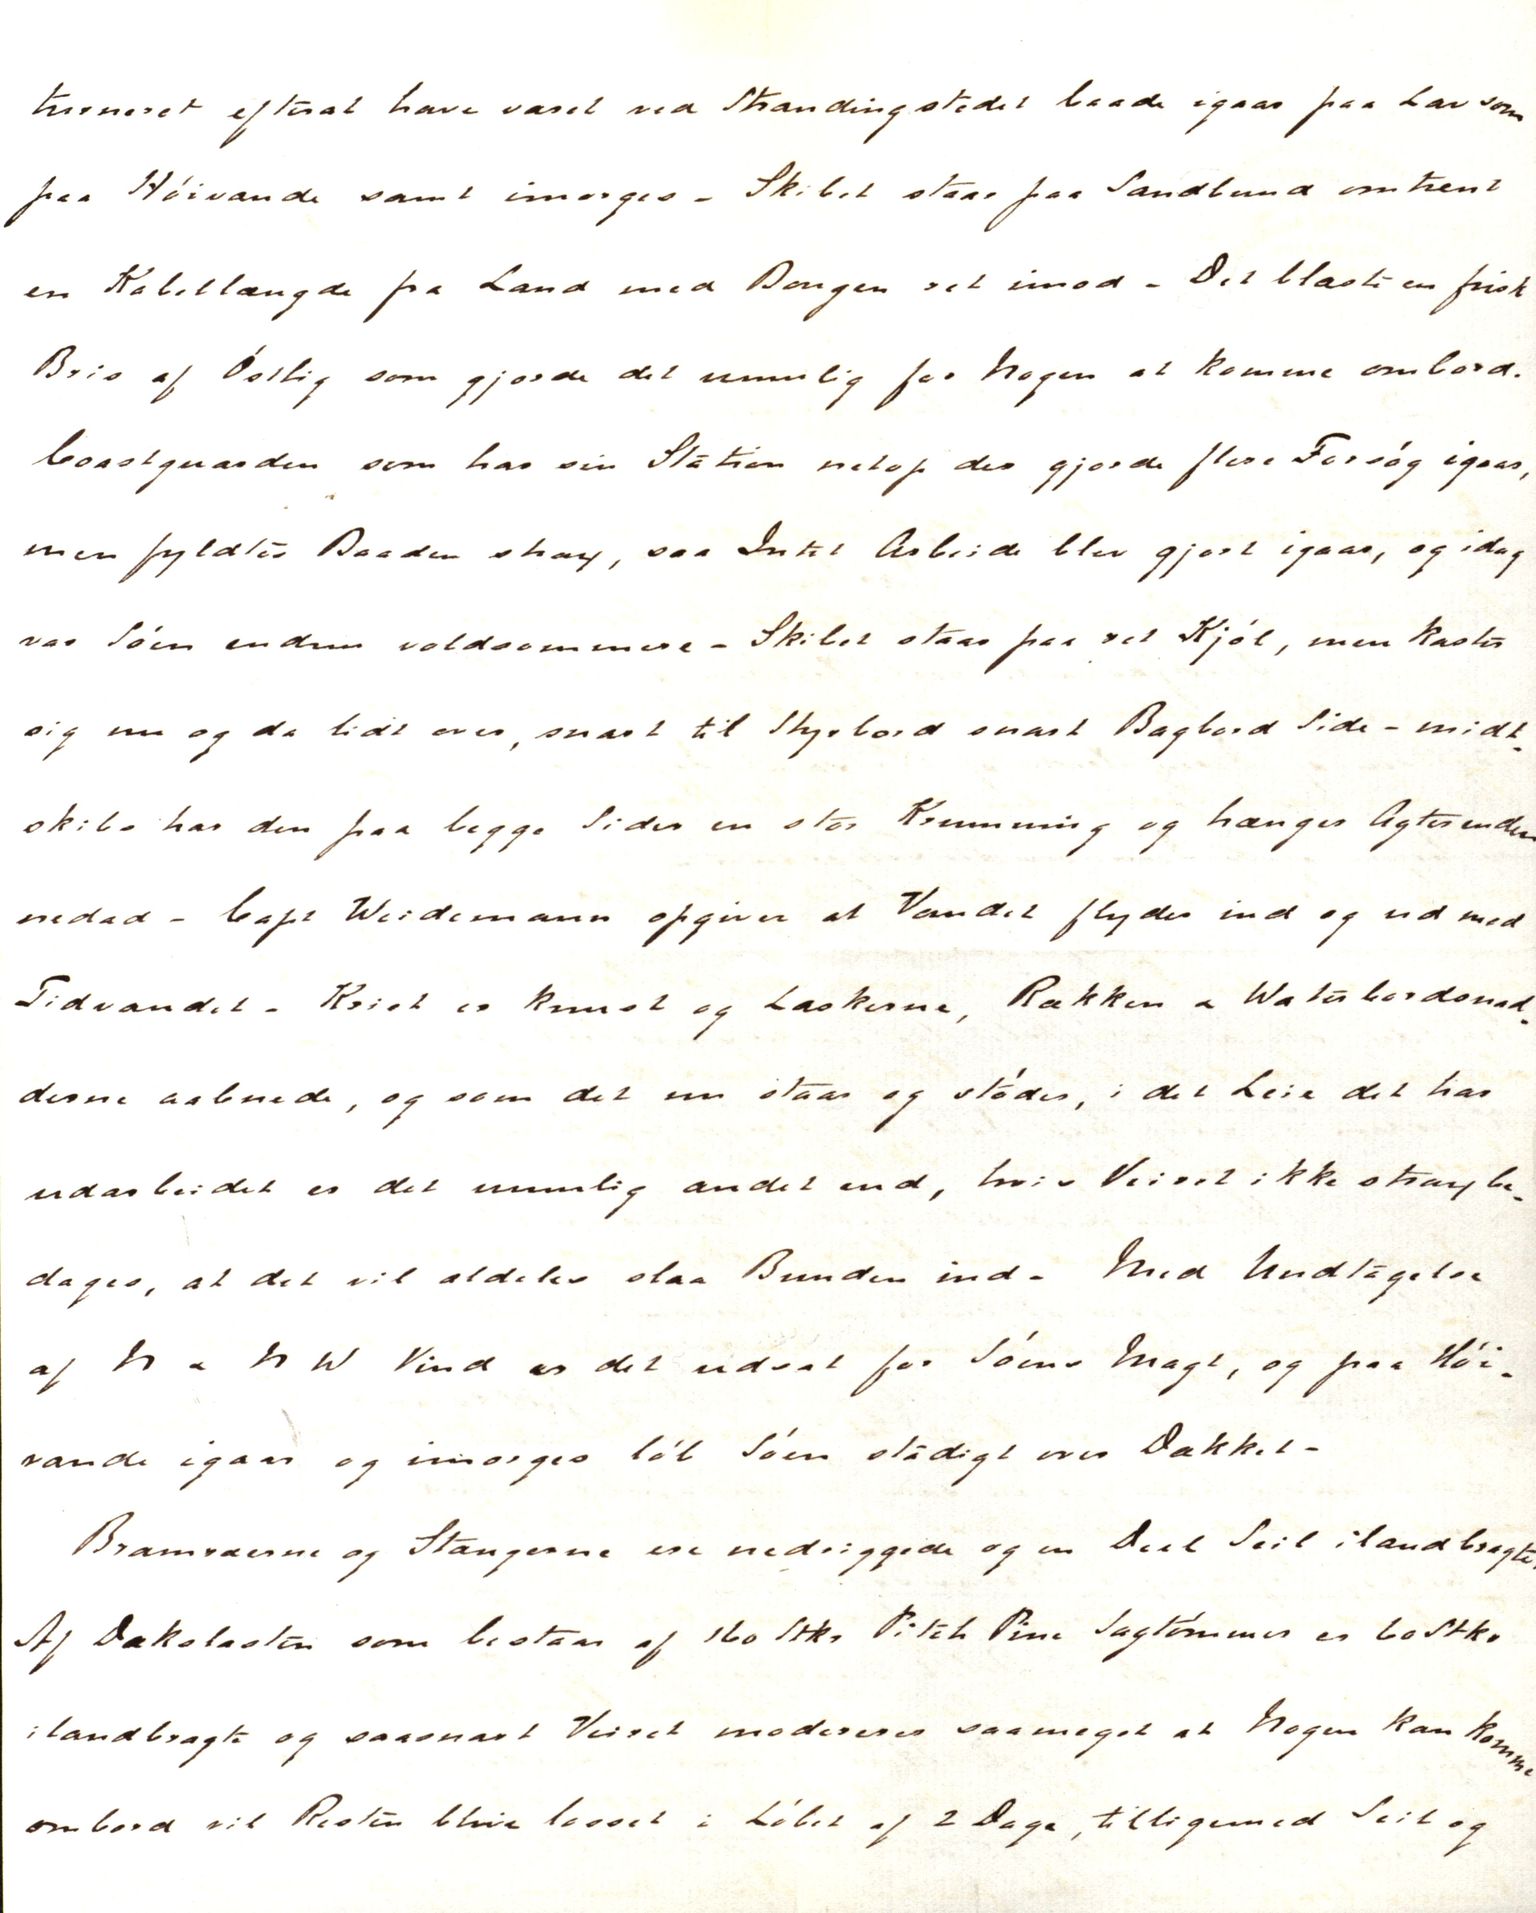 turneret efterat have været ved Strandingstedet baade igaar paa Lav som
paa Höivande samt imorges – Skibet staar paa Sandbund omtrent
en Kabellængde fra Land med Bougen ret imod – Det blæste en frisk
Bris af Östlig som gjorde det umulig for Nogen at komme ombord.
Coastguarden som har sin Station netop der gjorde flere Forsög igaar,
men fyldtes Baaden strax, saa Intet Arbeide blev gjort igaar, og idag
var Söen endnu voldsommere – Skibet staar paa ret Kjöl, men kaster
sig nu og da lidt over, snart til Styrbord snart Bagbord Side – midt-
skibs har den paa begge Sider en stor Krumning og hænger Agterenden
nedad – Capt Weidemann opgiver at Vandet flyder ind og ud med
Tidvandet – Kriet er knust og Laskerne, Rækken & Waterbordsnad-
derne aabnede, og som det nu staar og stöder, i det Leie det har
udarbeidet er det umulig andet end, hvis Veiret ikke strax be-
dages, at det vil aldeles slaa Bunden ind – Med Undtagelse
af N & N W Vind er det udsat for Söens Magt, og paa Höi-
vande igaar og imorges löb Söen stadigt over Dækket –
Bramraerne og Stængerne ere nedriggede og en Deel Seil ilandbragte.
Af Dækslasten som bestaar af 160 Stks Pitch Pine Sagtömmer er 60 Stks
ilandbragte og saasnart Veiret modererer saameget at Nogen kan komme
ombord vil Resten blive losset i Löbet af 2 Dage, tilligemed Seil og